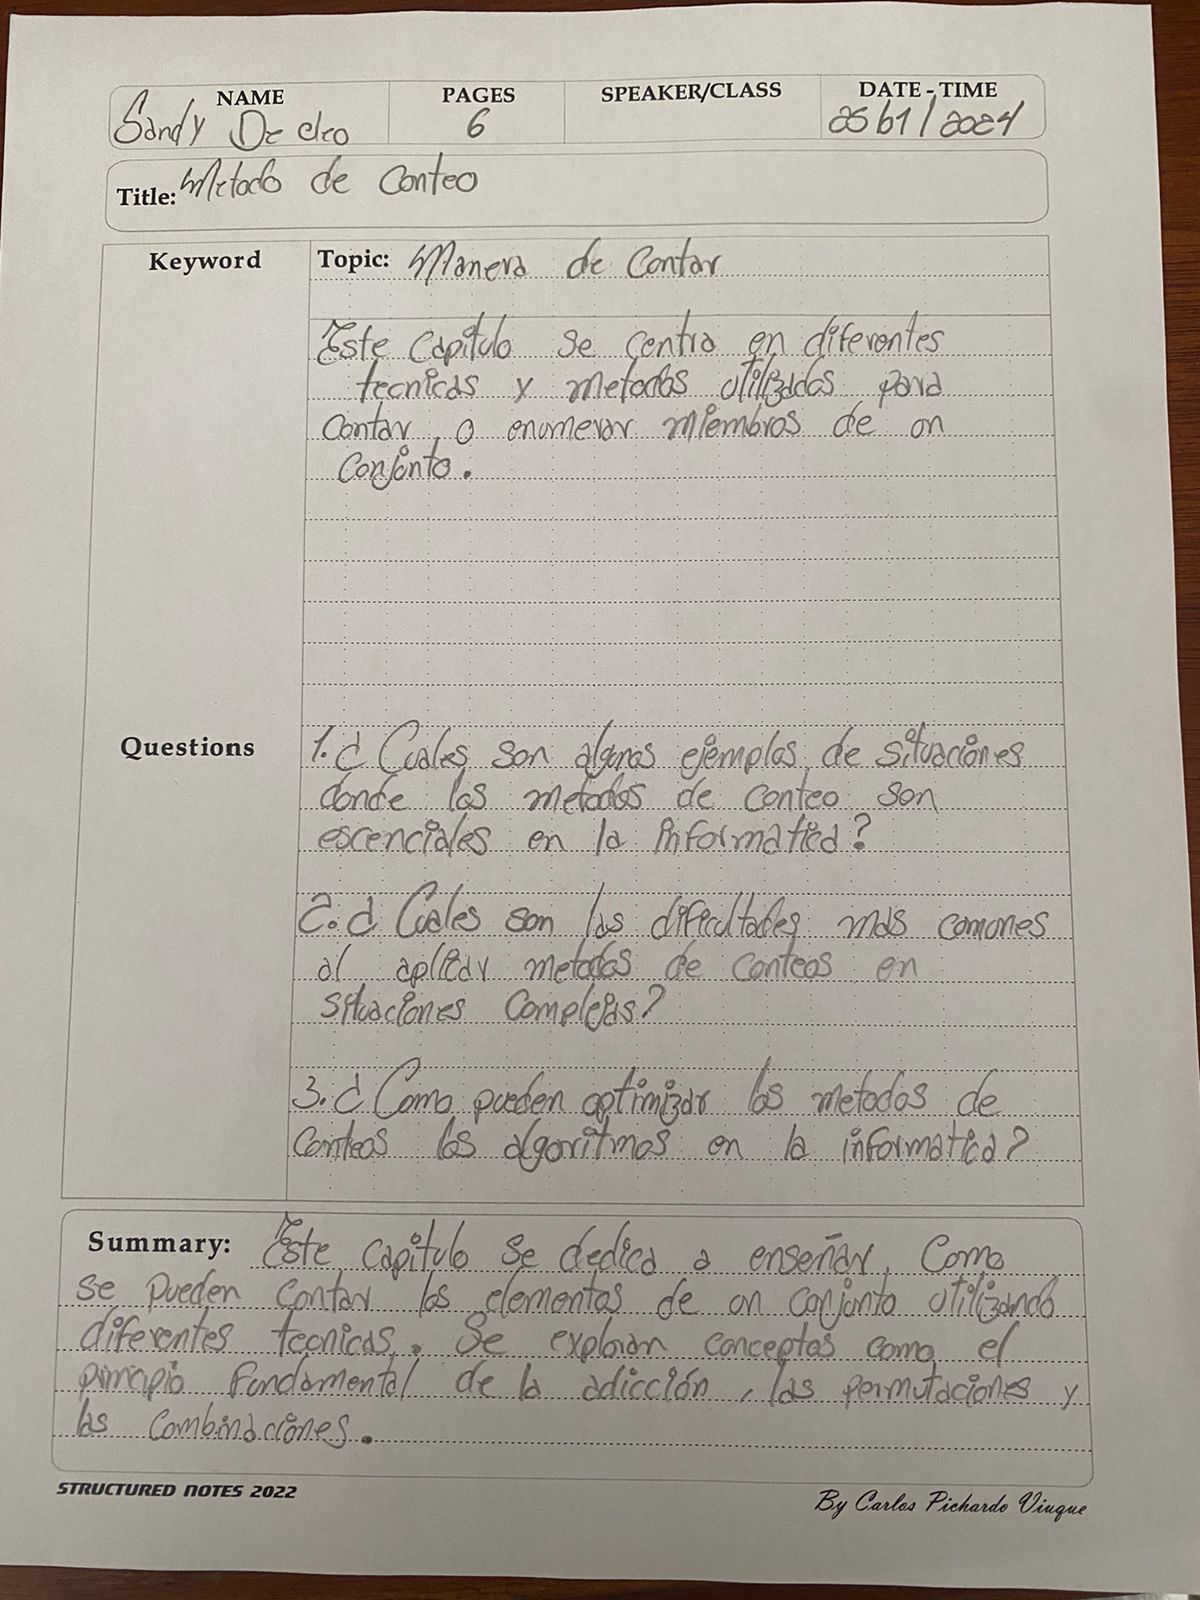 NAME
PAGES
SPEAKER/CLASS
DATE - TIME
Sandy De
6
/2024
Title: Metodo de Conteo
Keyword
Topic: Manera de Contar
Este Capitulo se centra en diferentes
tecnicas y metodos utilizados para
contar, o enumerar miembros de un
Conjunto.
Questions
1. ¿ Cuales son algunos ejemplos de situaciones
donde los metodos de conteo son
escenciales en la informatica?
2. ¿ Cuales son las dificultades mas comunes
al aplicar metodos de conteos en
situaciones Complejas?
3. ¿ Como pueden optimizar los metodos de
Conteos los algoritmos en la informatica?
Summary: Este capitulo se dedica a enseñar, Como
se pueden contar los elementos de un conjunto utilizando
diferentes tecnicas. Se exploran conceptos como el
principio fundamental de la adicción, las permutaciones y
las combinaciones.
STRUCTURED NOTES 2022
By Carlos Pichardo Viuque